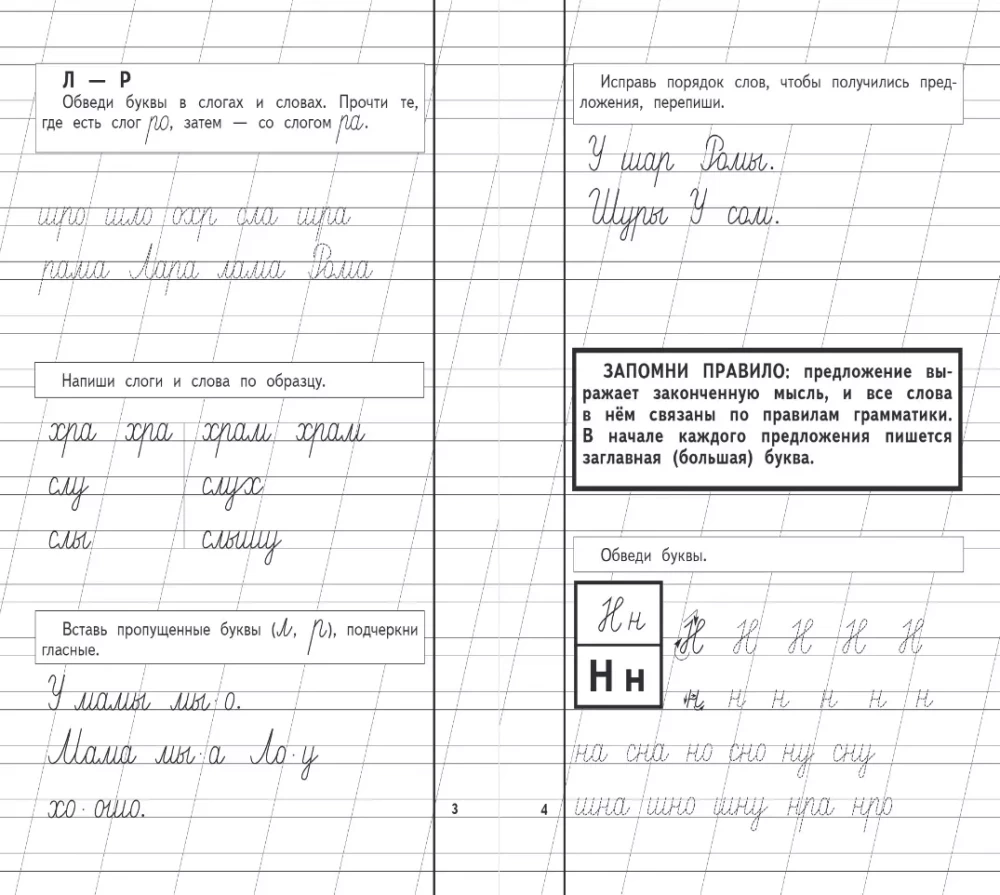 Л — Р
Обведи буквы в слогах и словах. Прочти те,
где есть слог ро, затем — со слогом ра.
шро шло охр сла шра
рама Лара лама Рома
Напиши слоги и слова по образцу.
хра хра храм храм
слу слух
слы слышу
Вставь пропущенные буквы (л, р), подчеркни
гласные.
У мамы мы·о.
Мама мы·а Ло·у
хо·ошо.
3
Исправь порядок слов, чтобы получились пред-
ложения, перепиши.
У шар Ромы.
Шуры У сом.
ЗАПОМНИ ПРАВИЛО: предложение вы-
ражает законченную мысль, и все слова
в нём связаны по правилам грамматики.
В начале каждого предложения пишется
заглавная (большая) буква.
Обведи буквы.
Н н
Н н
Н Н Н Н Н
н н н н н н
на сна но сно ну сну
шна шно шну нра нро
4